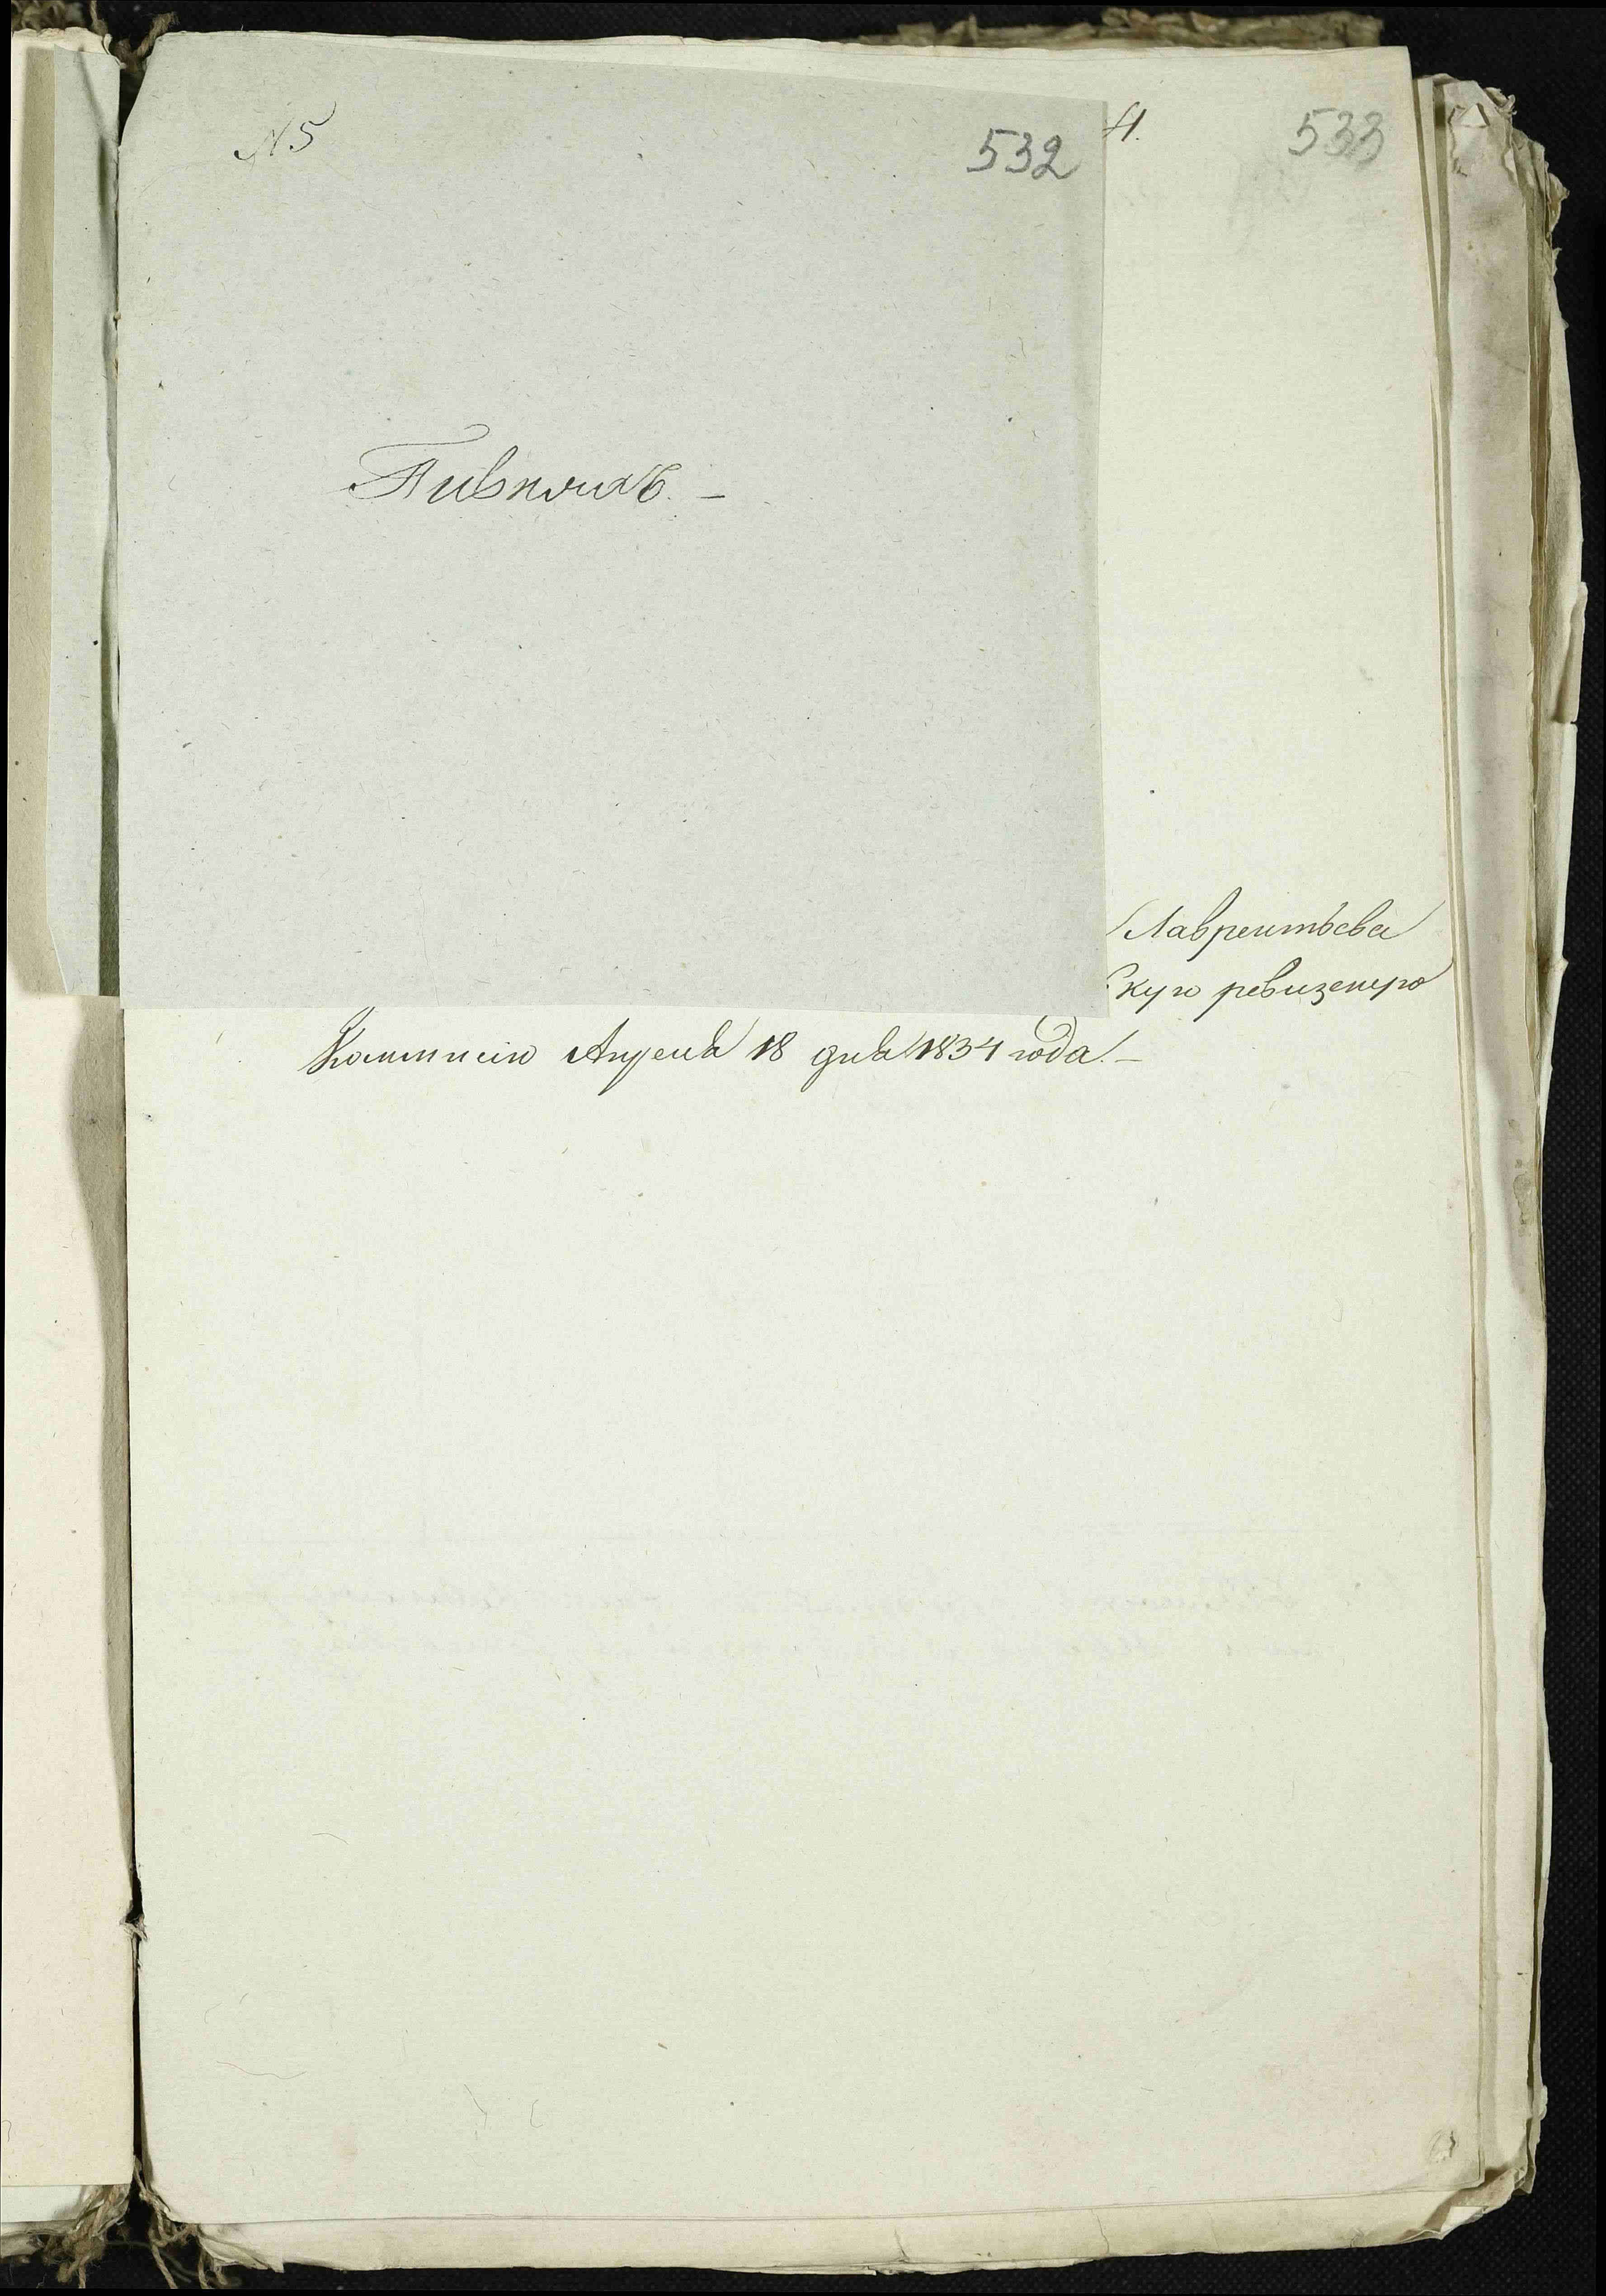 N 5
532
4.
533
Пивкочъ. –
Лаврентьева
скую ревизскую
Коммисію Апреля 18 дня 1834 года. –